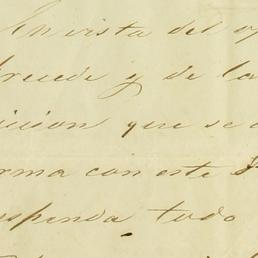 En vista del
precede y de la
icion que se
rma con este
uspenda todo